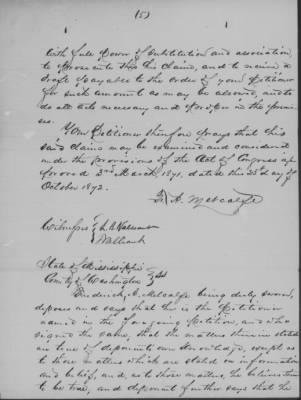 (5)
with full Power of Substitution and association
to prosecute this his Claim, and to receive a
draft payable to the order of your Petitioner
for such amount as may be allowed, and to
do all acts necessary and proper in the premi-
ses.
Your Petitioner therefore prays that this
said claim may be examined and considered
under the provisions of the Act of Congress ap-
proved 3rd March 1871, dated this day of
October 1872.
F. A. Metcalfe
Witnesses
State of Mississippi
County of Washington ss
Frederick A. Metcalfe being duly sworn,
deposes and says that he is the Petitioner
named in the foregoing Petition, and who
signed the same, that the matters therein stated
are true of deponents own knowledge, except as
to those matters which are stated on information
and belief, and as to those matters, he believes them
to be true, and deponent further says that he